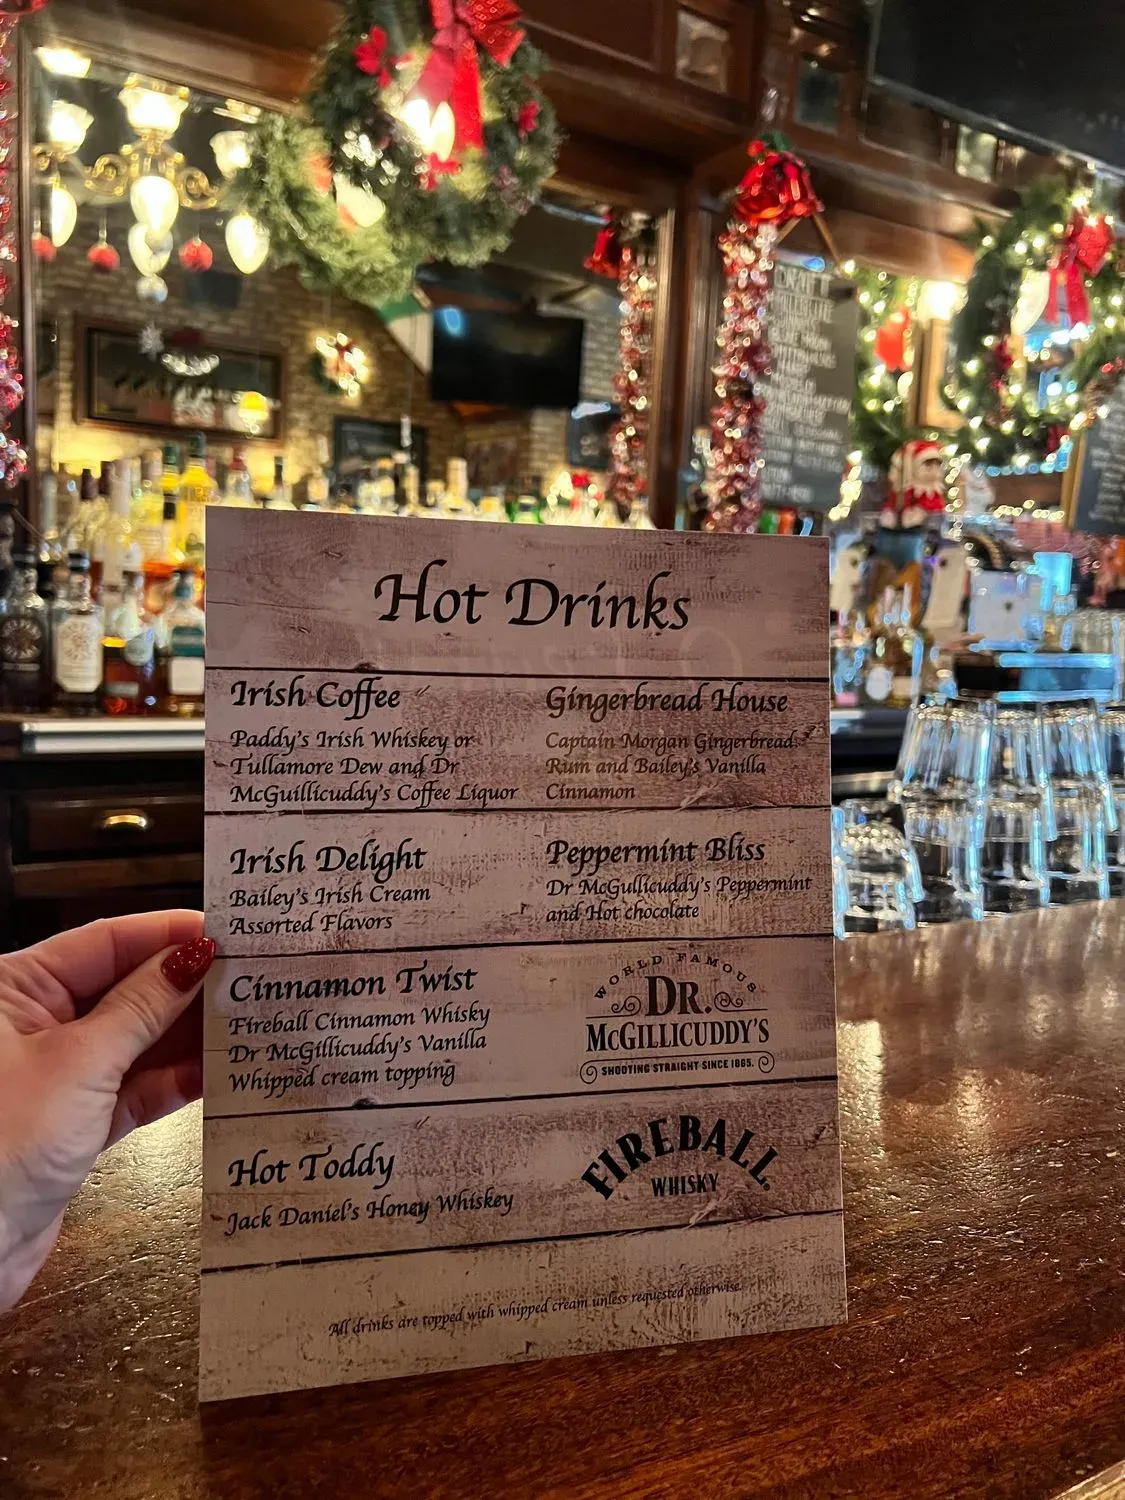 Hot Drinks
Irish Coffee
Paddy's Irish Whiskey or
Tullamore Dew and Dr
McGuillicuddy's Coffee Liquor
Gingerbread House
Captain Morgan Gingerbread
Rum and Bailey's Vanilla
Cinnamon
Irish Delight
Bailey's Irish Cream
Assorted Flavors
Peppermint Bliss
Dr McGullicuddy's Peppermint
and Hot chocolate
Cinnamon Twist
Fireball Cinnamon Whisky
Dr McGillicuddy's Vanilla
Whipped cream topping
WORLD FAMOUS
DR.
McGILLICUDDY'S
SHOOTING STRAIGHT SINCE 1865.
Hot Toddy
Jack Daniel's Honey Whiskey
FIREBALL
WHISKY
All drinks are topped with whipped cream unless requested otherwise.
DRAFT